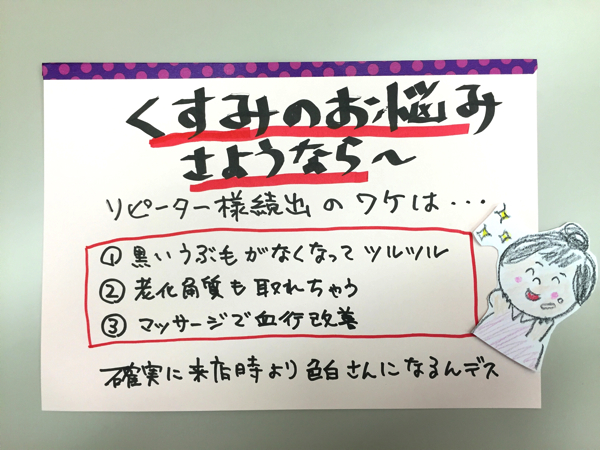 くすみのお悩み
さようなら〜
リピーター様続出のワケは・・・
① 黒いうぶ毛がなくなってツルツル
② 老化角質も取れちゃう
③ マッサージで血行改善
確実に来店時より色白さんになるんデス